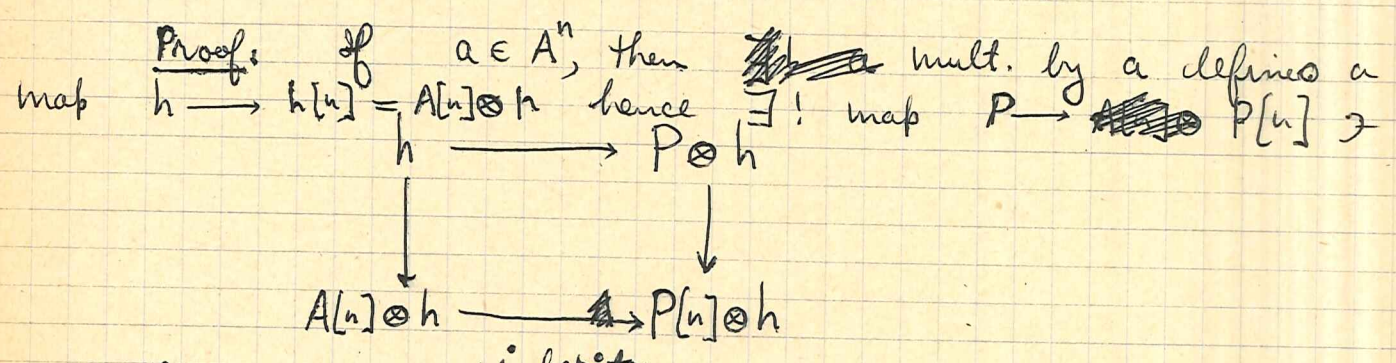 Proof: If a ∈ Aⁿ, then mult. by a defines a
map h ⟶ h[n] = A[n]⊗h hence ∃! map P ⟶ P[n] ∋
h ⟶ P⊗h
A[n]⊗h ⟶ P[n]⊗h